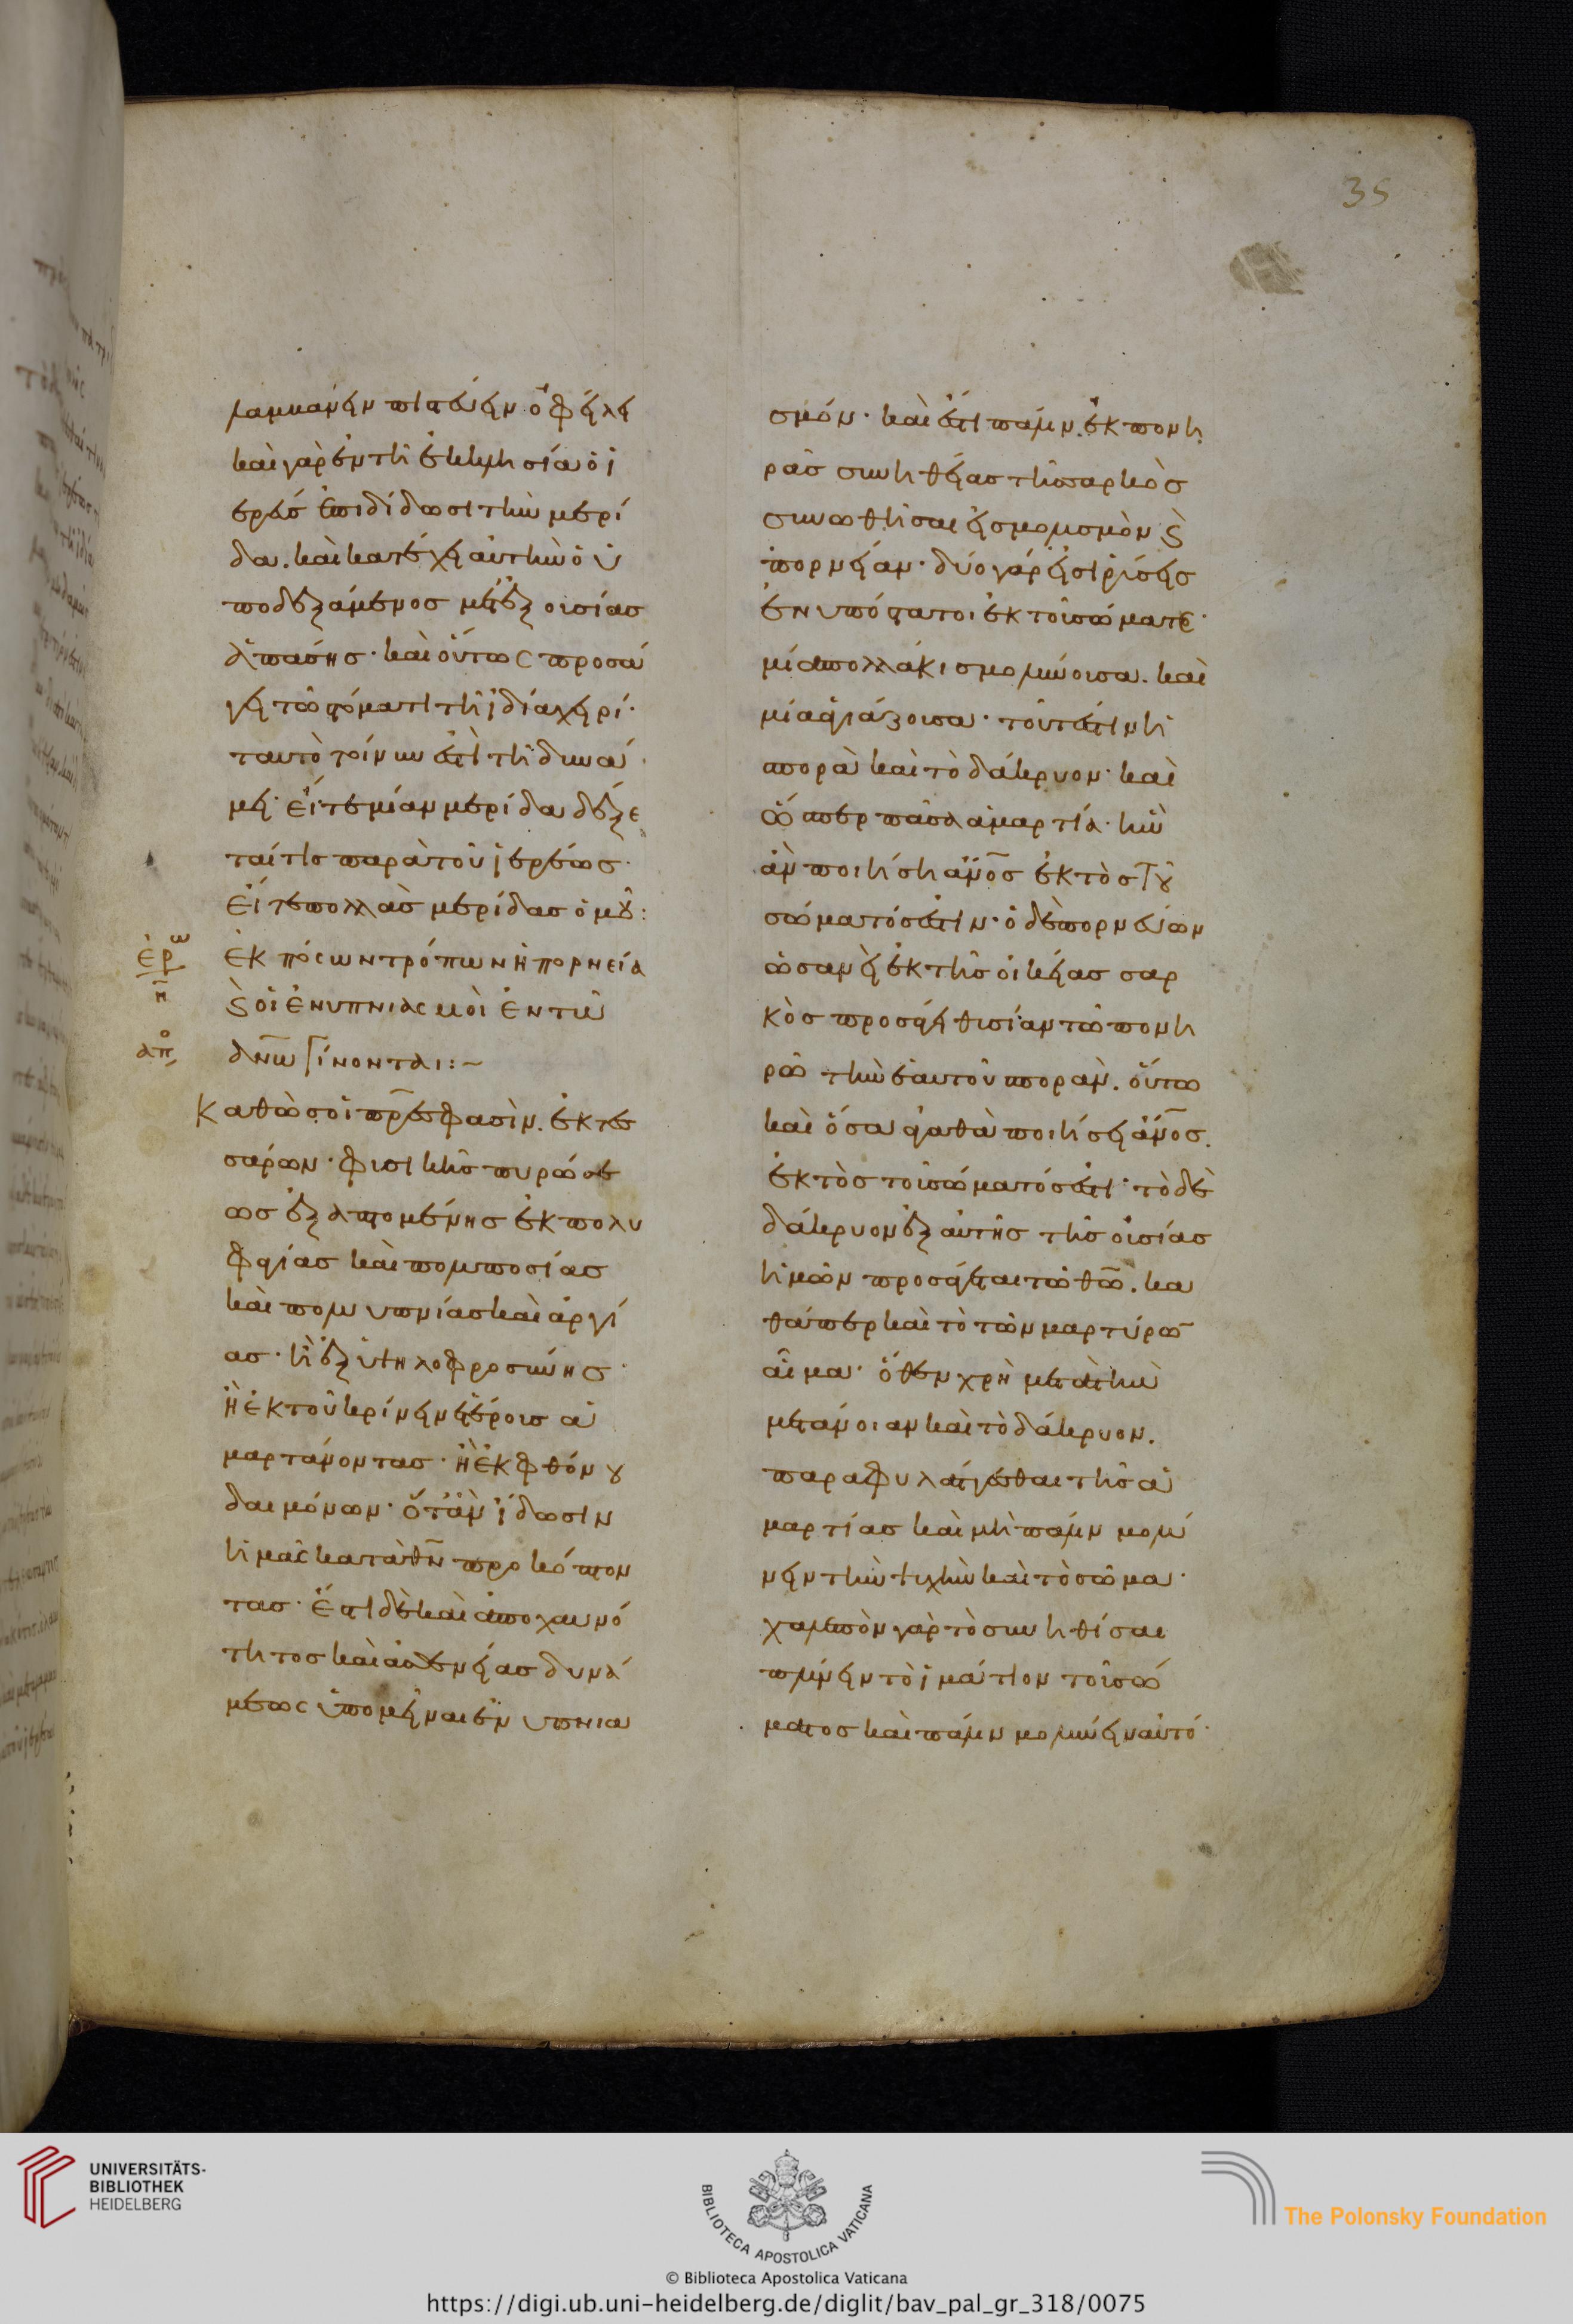 λαμβάνειν πιστεύειν ὀφείλει
καὶ γὰρ ἐν τῆ ἐκκλησία ὁ ἱ
ερεὺς ἐπιδίδωσι τὴν μερί
δα. καὶ κατέχει αὐτὴν ὁ ὑ
ποδεξάμενος μετ' ἐξουσίας
ἁπάσης· καὶ οὕτως προσά
γει τῶ στόματι τῆ ἰδία χειρί·
ταυτὸ τοίνυν ἐστὶ τῆ δυνά
μει· εἴτε μίαν μερίδα δέξε
ταί τις παρὰ τοῦ ἱερέως·
εἴτε πολλὰς μερίδας ὁμοῦ:
ἐρω
νη
ἐκ πόσων τρόπων ἡ πορνεία
ϗ οἱ ἐνυπνιασμοὶ ἐν τῶ
απο
ἀνω γίνονται:~
Καθὼς οἱ πρες φασὶν. ἐκ τεσ
σάρων· φυσικῆς πυρώσε
ως ἐξαπτομένης ἐκ πολυ
φαγίας καὶ πολυποσίας
καὶ πολυυπνίας καὶ ἀργί
ας· ἢ ἐξ ὑψηλοφροσύνης·
ἢ ἐκ τοῦ κρίνειν ἑτέρους ἁ
μαρτάνοντας· ἢ ἐκ φθόνου
δαιμόνων· ὅταν ἴδωσιν
ἡμᾶς κατὰ θν προκόπτον
τας· ἔστι δὲ καὶ ἀπὸ χαυνό
τητος καὶ ἀσθενείας δυνά
μεως ὑπομεῖναι ἐνυπνια
35
σμόν· καὶ ἔστι πάλιν. ἐκ πονη
ρᾶς συνηθείας τῆς σαρκὸς
συνωθῆσαι εἰς μολυσμὸν ϗ
πορνείαν· δύο γάρ εἰσι ῥύσεις
ἐνυπόστατοι ἐκ τοῦ σώματος·
μία πολλάκις μολύνουσα. καὶ
μία ἁγιάζουσα· τοῦτ' ἔστιν ἡ
σπορὰ καὶ τὸ δάκρυον· καὶ
ὥσπερ πᾶσα ἁμαρτία· ἣν
ἂν ποιήση ἄνος ἐκτὸς τοῦ
σώματός ἐστιν· ὁ δὲ πορνεύων
ὡσανεὶ ἐκ τῆς οἰκείας σαρ
κὸς προσάγει θυσίαν τῶ πονη
ρῶ τὴν ἑαυτοῦ σποράν. οὕτω
καὶ ὅσα ἀγαθὰ ποιήσει ἄνος.
ἐκτὸς τοῦ σώματός ἐστι· τὸ δὲ
δάκρυον ἐξ αὐτῆς τῆς οὐσίας
ἡμῶν προσάγεται τῶ θω. κα
θάπερ καὶ τὸ τῶν μαρτύρω
αἷμα· ὅθεν χρὴ μετὰ τὴν
μετάνοιαν καὶ τὸ δάκρυον.
παραφυλάττεσθαι τῆς ἁ
μαρτίας καὶ μὴ πάλιν μολύ
νειν τὴν ψυχὴν καὶ τὸ σῶμα·
χαλεπὸν γὰρ τὸ συνηθίσαι
πλύνειν τὸ ἱμάτιον τοῦ σώ
ματος καὶ πάλιν μολύνειν αὐτό·
UNIVERSITÄTS-
BIBLIOTHEK
HEIDELBERG
BIBLIOTECA APOSTOLICA VATICANA
The Polonsky Foundation
© Biblioteca Apostolica Vaticana
https://digi.ub.uni-heidelberg.de/diglit/bav_pal_gr_318/0075